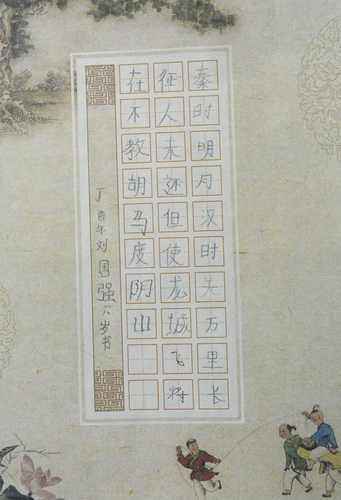 秦时明月汉时关万里长
征人未还但使龙城飞将
在不教胡马度阴山
丁酉年刘国强六岁书